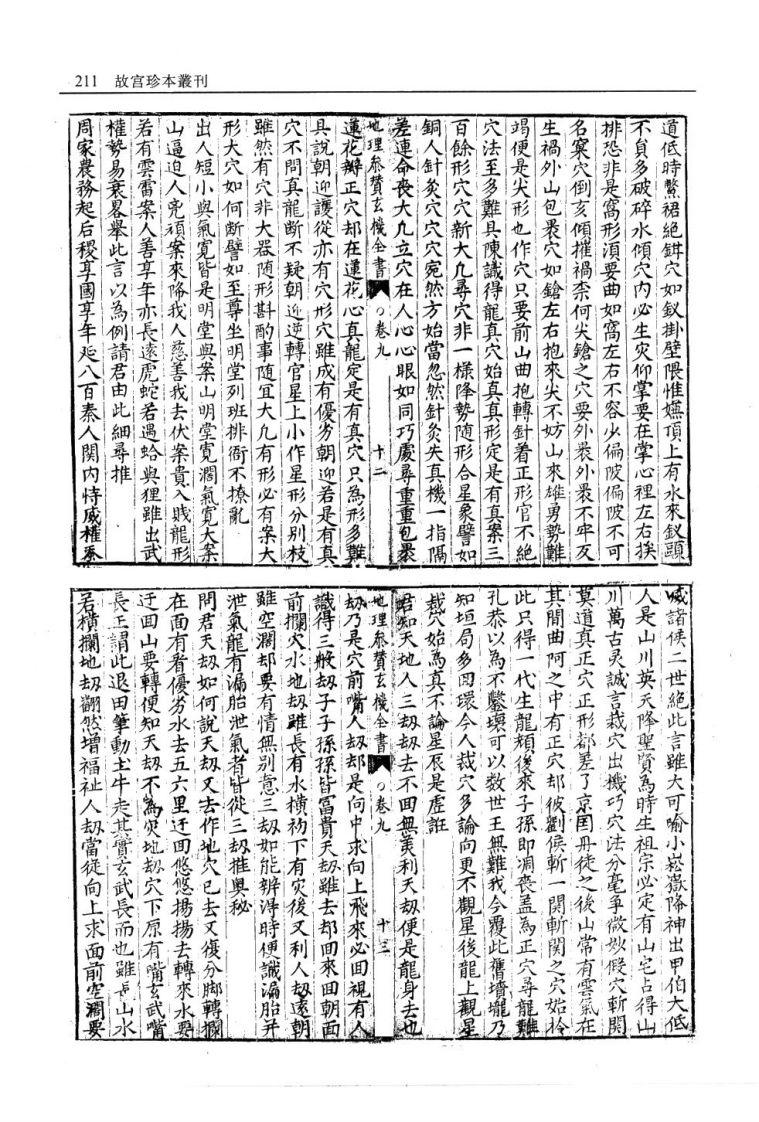 211 故宫珍本叢刊
道低時鱉裙絕鉗穴如釵掛壁隈惟嫌頂上有水來釵頭
不員多破碎水傾穴内必生灾仰掌要在掌心裡左右挨
排恐非是窩形湏要曲如窩左右不容少偏陂偏陂不可
名窠穴倒亥傾摧禍柰何尖鎗之穴要外褁外褁不牢反
生禍外山包褁穴如鎗左右抱來尖不妨山來雄勇勢難
竭便是尖形也作穴只要前山曲抱轉針着正形官不絕
穴法至多難具陳識得龍真穴始真真形定是有真案三
百餘形穴穴新大凣尋穴非一樣降勢随形合星象譬如
銅人針灸穴穴穴宛然方始當忽然針灸失真機一指隔
差連命喪大凣立穴在人心心眼如同巧處尋重重包褁
地理叅贊玄機全書 ○卷九 十二
蓮花瓣正穴却在蓮花心真龍定是有真穴只為形多難
具說朝迎護從亦有穴形穴雖成有優劣朝迎若是有真
穴不問真龍断不疑朝迎逆轉官星上小作星形分别枝
雖然有穴非大器随形斟酌事随宜大凣有形必有案大
形大穴如何断譬如至尊坐明堂列班排衙不撩亂
出人短小與氣寛皆是明堂與案山明堂寛濶氣寛大案
山逼迫人兇頑案來降我人慈善我去伏案貴入賤龍形
若有雲雷案人善享年亦長逺虎蛇若遇蛤與狸雖出武
權勢易衰畧舉此言以為例請君由此細尋推
周家農務起后稷享國享年延八百秦人関内恃威權
喊諸侯二世絕此言雖大可喻小崧嶽降神出甲伯大低
人是山川英天降聖賢為時生祖宗必定有山宅占得山
川萬古灵誠言裁穴出機巧穴法分毫爭微妙假穴斬関
莫道真正穴正形都差了京囯丹徒之後山常有雲氣在
其間曲阿之中有正穴却彼劉侯斬一関斬関之穴始於
此只得一代生龍顏後來子孫即凋喪盖為正穴尋龍難
孔恭以為不鑿壞可以数世王無難我今覆此舊墳壠乃
知垣局多囬環今人裁穴多論向更不觀星後龍上觀星
裁穴始為真不論星辰是虛誑
君知天地人三刼刼去不囬無美利天刼便是龍身去也
地理叅贊玄機全書 ○卷九 十三
刼乃是穴前嘴人刼却是向中求向上飛來必囬視有人
識得三般刼子子孫孫皆冨貴天刼雖去却囬來囬朝面
前攔灾水地刼雖長有水横礿下有灾後又利人刼逺朝
雖空濶却要有情無别意三刼如能辨得時便識漏胎并
泄氣龍有漏胎泄氣者皆從三刼推奥秘
問君天刼如何說天刼又去作地穴已去又復分脚轉攔
在面有者優劣水去五六里迂囬悠悠揚揚去轉來水要
迂囬山要轉便知天刼不為灾地刼穴下原有嘴玄武嘴
長正謂此退田筆動土牛走其實玄武長而也雖長山水
若横攔地刼翻然增福祉人刼當從向上求面前空濶要